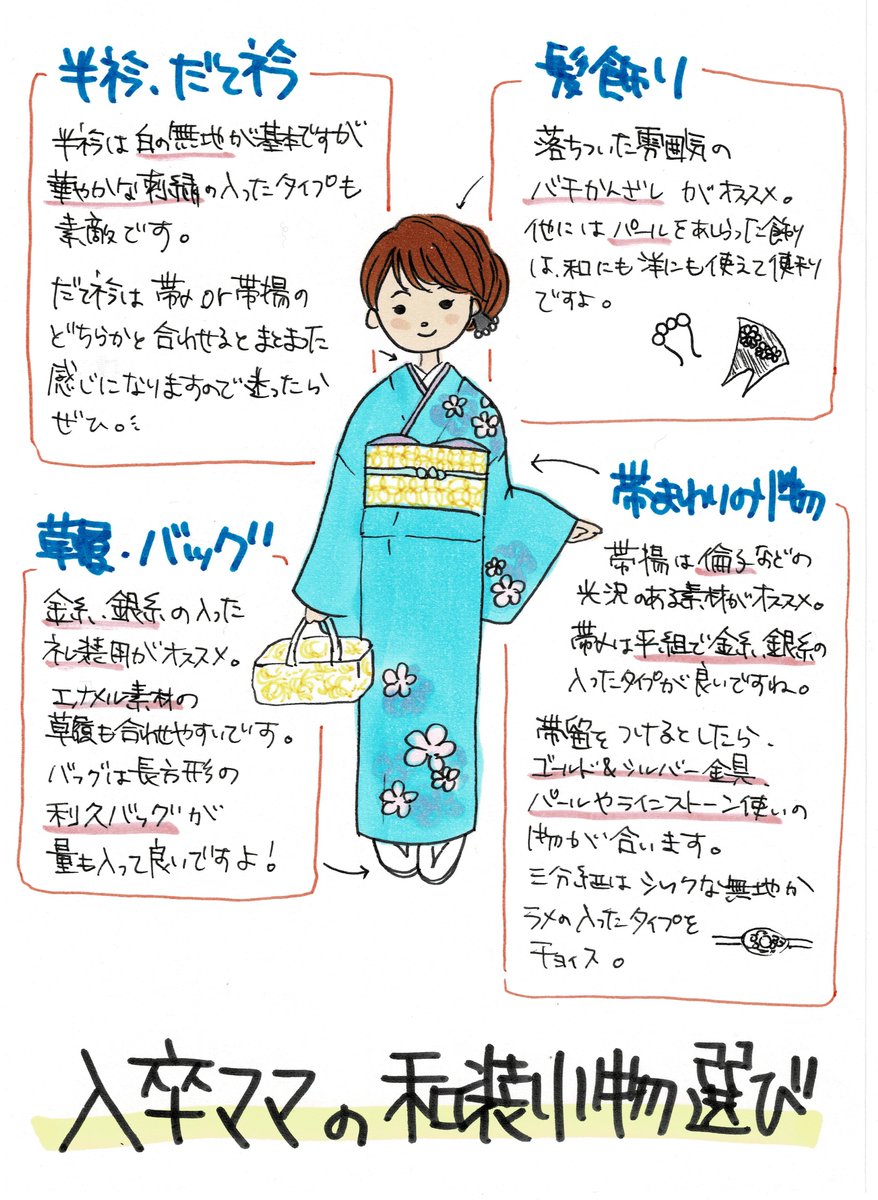 半衿、だて衿
半衿は白の無地が基本ですが
華やかな刺繍の入ったタイプも
素敵です。
だて衿は帯〆or帯揚の
どちらかと合わせるとまとまった
感じになりますので迷ったら
ぜひ。
髪飾り
落ちついた雰囲気の
バチかんざしがオススメ。
他にはパールをあしらった飾り
は、和にも洋にも使えて便利
ですよ。
草履・バッグ
金糸、銀糸の入った
礼装用がオススメ。
エナメル素材の
草履も合わせやすいです。
バッグは長方形の
利久バッグが
量も入って良いですよ!
帯まわりの小物
帯揚は倫子などの
光沢のある素材がオススメ。
帯〆は平組で金糸、銀糸の
入ったタイプが良いですね。
帯留をつけるとしたら、
ゴールド&シルバー金具、
パールやラインストーン使いの
物が合います。
三分紐はシックな無地か
ラメの入ったタイプを
チョイス。
入卒ママの和装小物選び